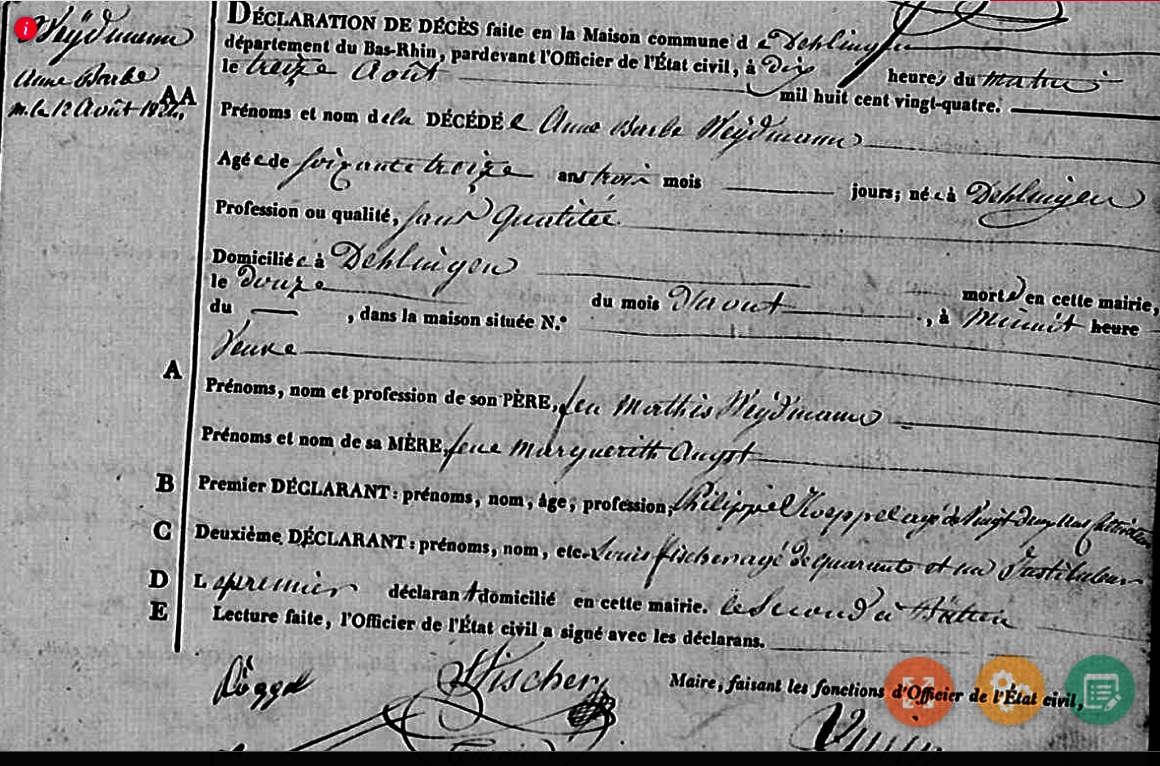 Weÿdmann
Anne Barbe
m. le 12 Août 1824.
AA
DÉCLARATION DE DÉCÈS faite en la Maison commune d e Dehlingen
département du Bas-Rhin, pardevant l'Officier de l'État civil, à Dix heures du matin
le treize Août mil huit cent vingt-quatre.
Prénoms et nom de la DÉCÉDÉe Anne Barbe Weÿdmann
Agée de soixante treize ans trois mois jours; née à Dehlingen
Profession ou qualité, sans Qualitée
Domiciliée à Dehlingen
le douze du mois d'aout morte en cette mairie,
du , dans la maison située N.° , à minuit heure
Veuve
A
Prénoms, nom et profession de son PÈRE, feu Mathis Weÿdmann
Prénoms et nom de sa MÈRE, feue Marguerith Augst
B Premier DÉCLARANT: prénoms, nom, âge, profession, Philippe Koeppel agé de Vingt
C Deuxième DÉCLARANT: prénoms, nom, etc. Louis fischer agé de quarante et un Instituteur
D Le premier déclarant domicilié en cette mairie. le Second à
E Lecture faite, l'Officier de l'État civil a signé avec les déclarans.
Fischer
Maire, faisant les fonctions d'Officier de l'État civil,